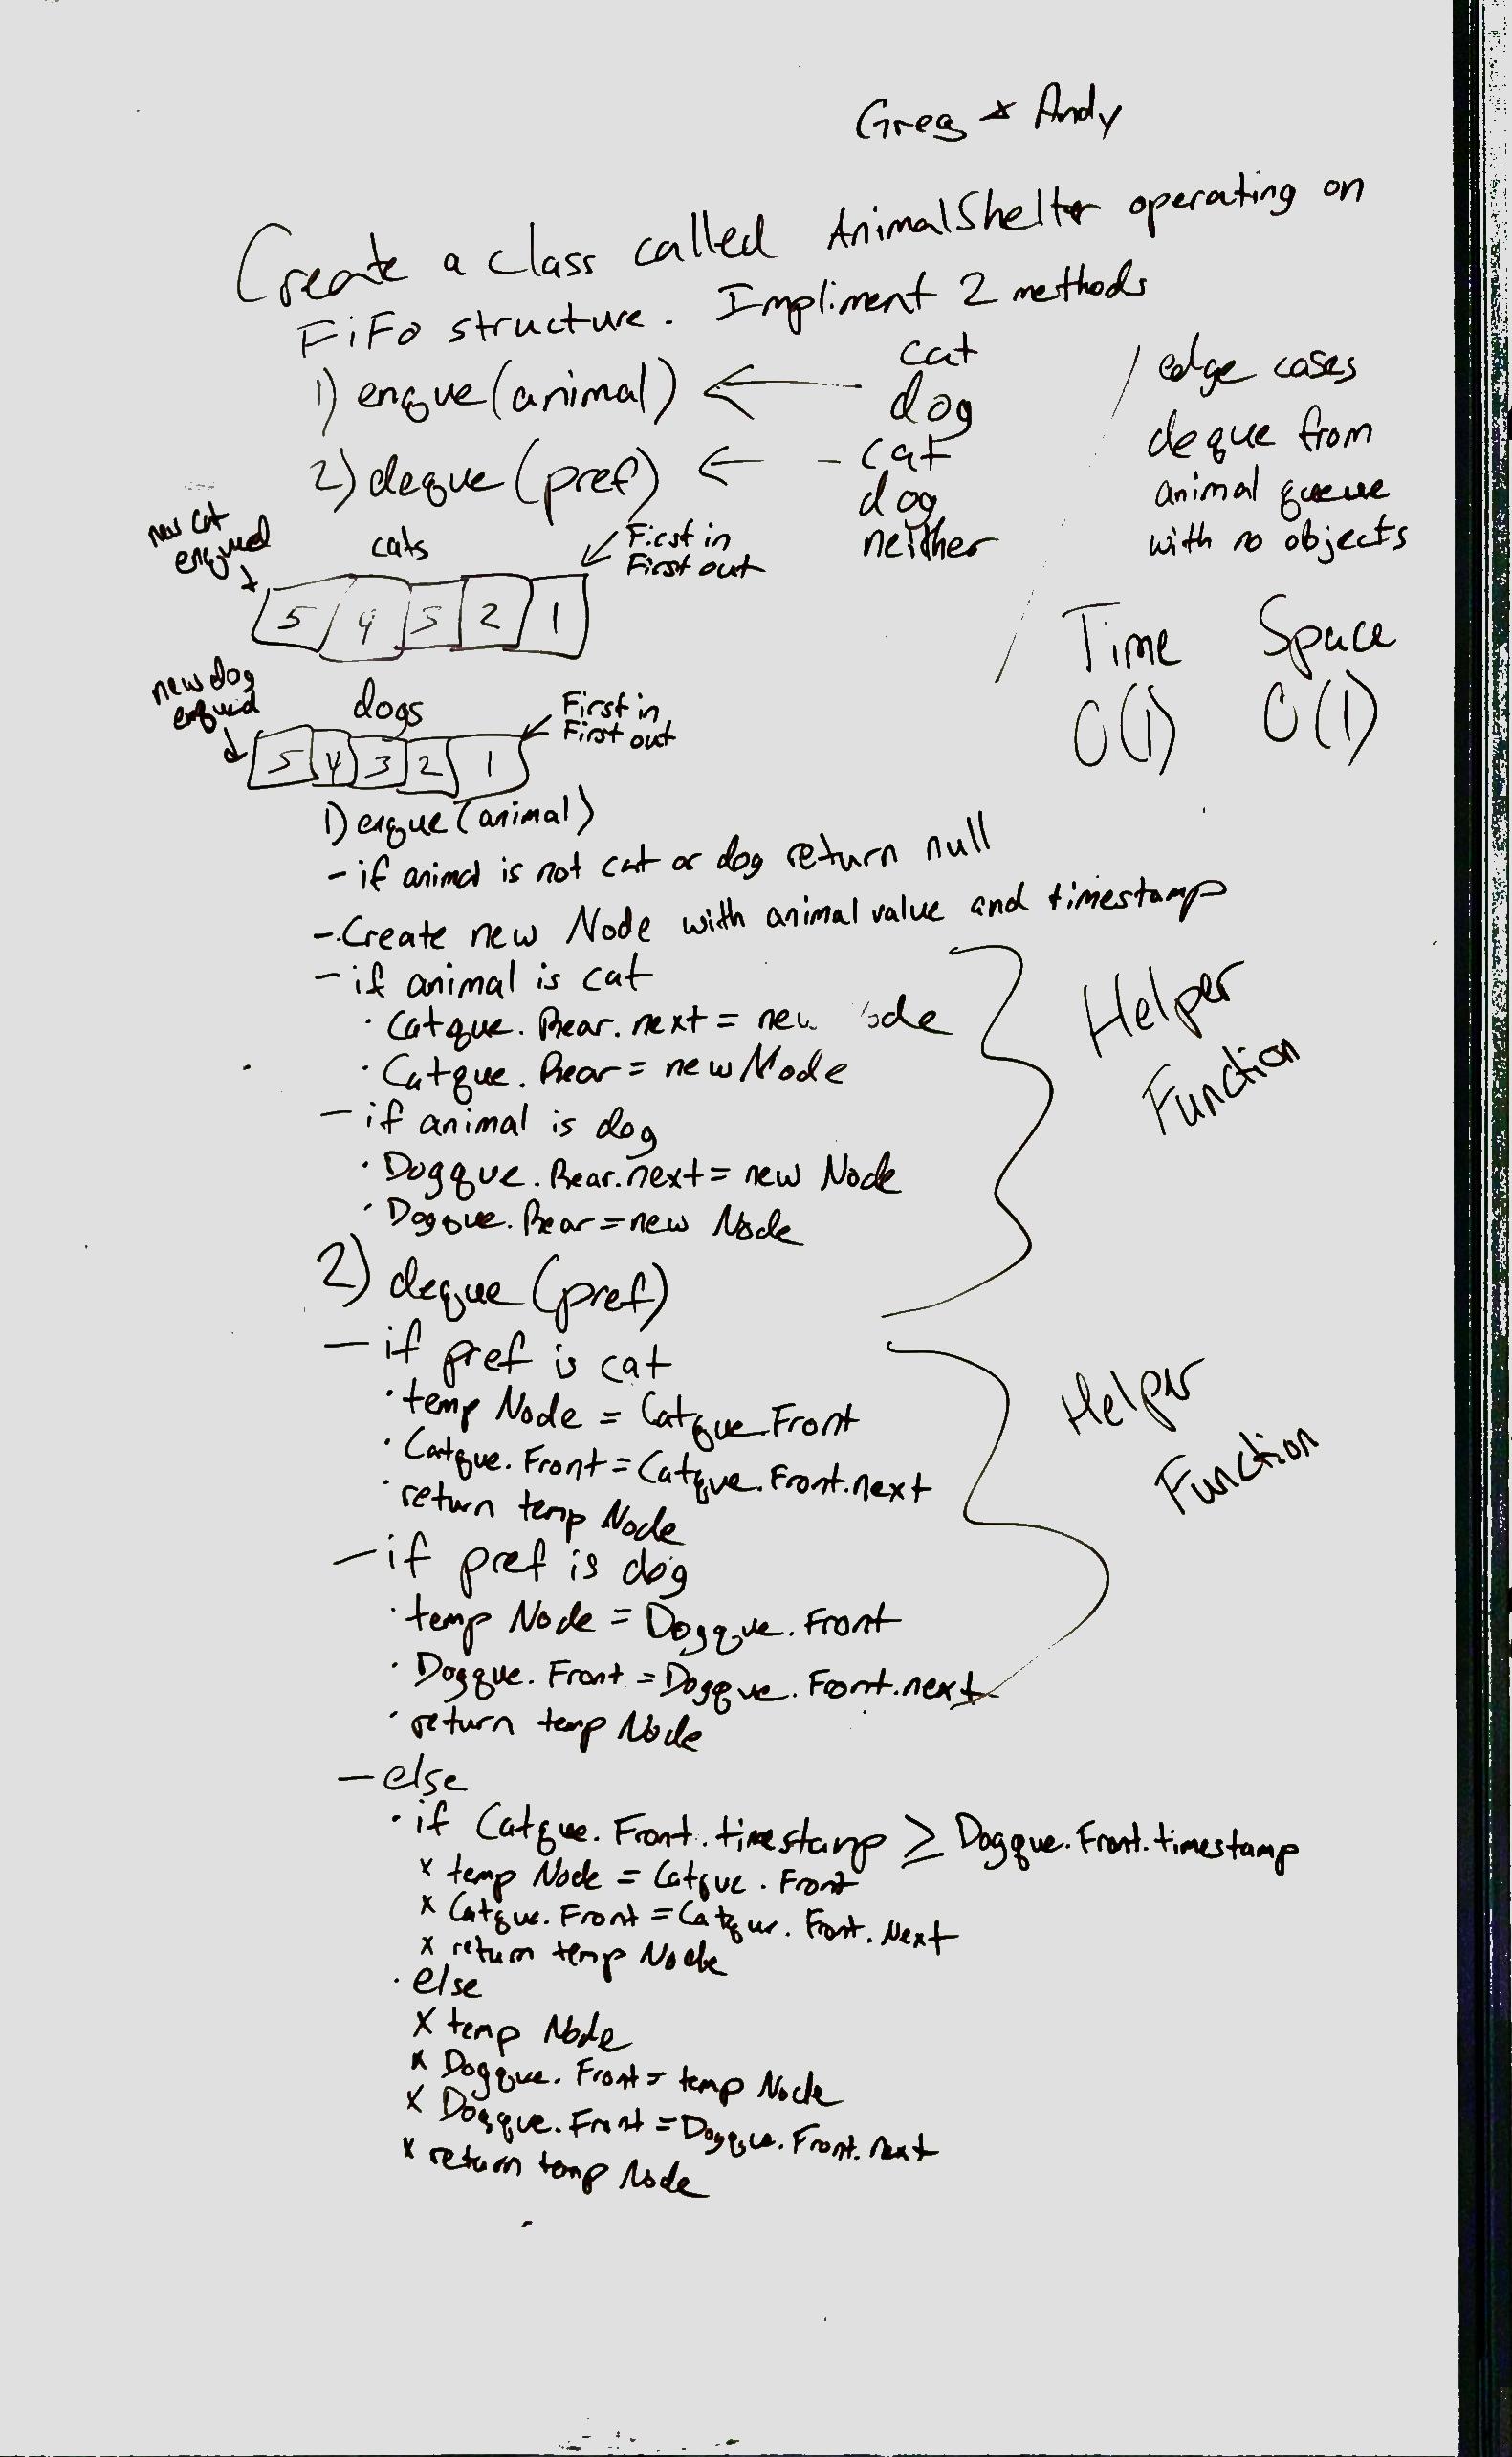 Greg & Andy
Create a class called AnimalShelter operating on
FiFo structure. Impliment 2 methods
1) enque(animal) ← cat
dog
2) deque(pref) ← - cat
dog
neither
/ edge cases
deque from
animal queue
with no objects
Time Space
O(1) O(1)
new cat
enqued
cats
First in
First out
5 4 3 2 1
new dog
enqued
dogs
First in
First out
5 4 3 2 1
1) enque(animal)
- if animal is not cat or dog return null
- Create new Node with animal value and timestamp
- if animal is cat
· Catque. Rear. next = new ode
· Catque. Rear = new Node
- if animal is dog
· Dogque. Rear. next = new Node
· Dogque. Rear = new Node
Helper
Function
2) deque (pref)
- if pref is cat
· temp Node = Catque Front
· Catque. Front = Catque. Front. next
· return temp Node
- if pref is dog
· temp Node = Dogque. Front
· Dogque. Front = Dogque. Front. next
· return temp Node
Helper
Function
- else
· if Catque. Front. timestamp ≥ Dogque. Front. timestamp
x temp Node = Catque. Front
x Catque. Front = Catque. Front. Next
x return temp Node
· else
x temp Node
x Dogque. Front = temp Node
x Dogque. Front = Dogque. Front. next
x return temp Node